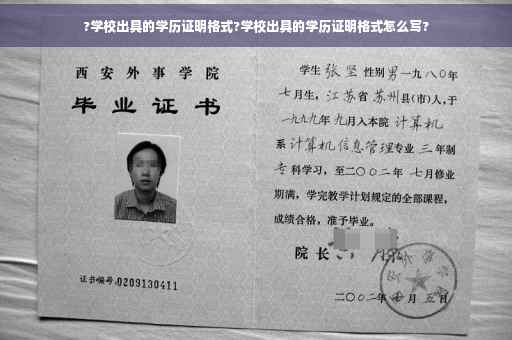 ?学校出具的学历证明格式?学校出具的学历证明格式怎么写?
西安外事学院
毕业证书
证书编号:0209130411
学生 张坚 性别 男 一九八〇年
七月生，江苏省 苏州县(市)人，于
一九九九年 九月入本院 计算机
系 计算机信息管理专业 三 年制
专科学习，至二〇〇二年 七月修业
期满，学完教学计划规定的全部课程，
成绩合格，准予毕业。
院长
二〇〇二年 月 五日